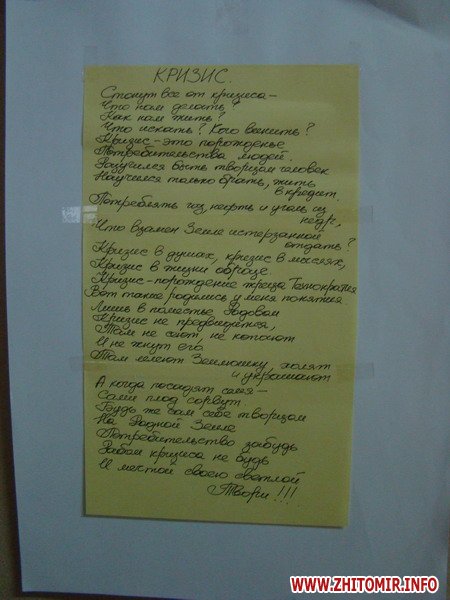 КРИЗИС.
Стонут все от кризиса –
Что нам делать?
Как нам жить?
Что искать? Кого винить?
Кризис – это порожденье
Потребительства людей.
Разучился быть творцом человек
Научился только брать, жить
в кредит.
Потреблять газ, нефть и уголь из
недр,
Что взамен Земле истерзанной
отдать?
Кризис в душах, кризис в мыслях,
Кризис в жизни образе.
Кризис – порождение жреца Технократия
Вот такие родились у меня понятия.
Лишь в поместье Родовом
Кризис не предвидется,
Там не сеют, не
И не жнут его
Там лелеют Землюшку, холят
и украшают
А когда посадят сами –
Сами плод сорвут.
Будь же сам себе творцом
На Родной Земле
Потребительство забудь
Рабом кризиса не будь
И мечтой своею светлой
Твори!!!
WWW.ZHITOMIR.INFO